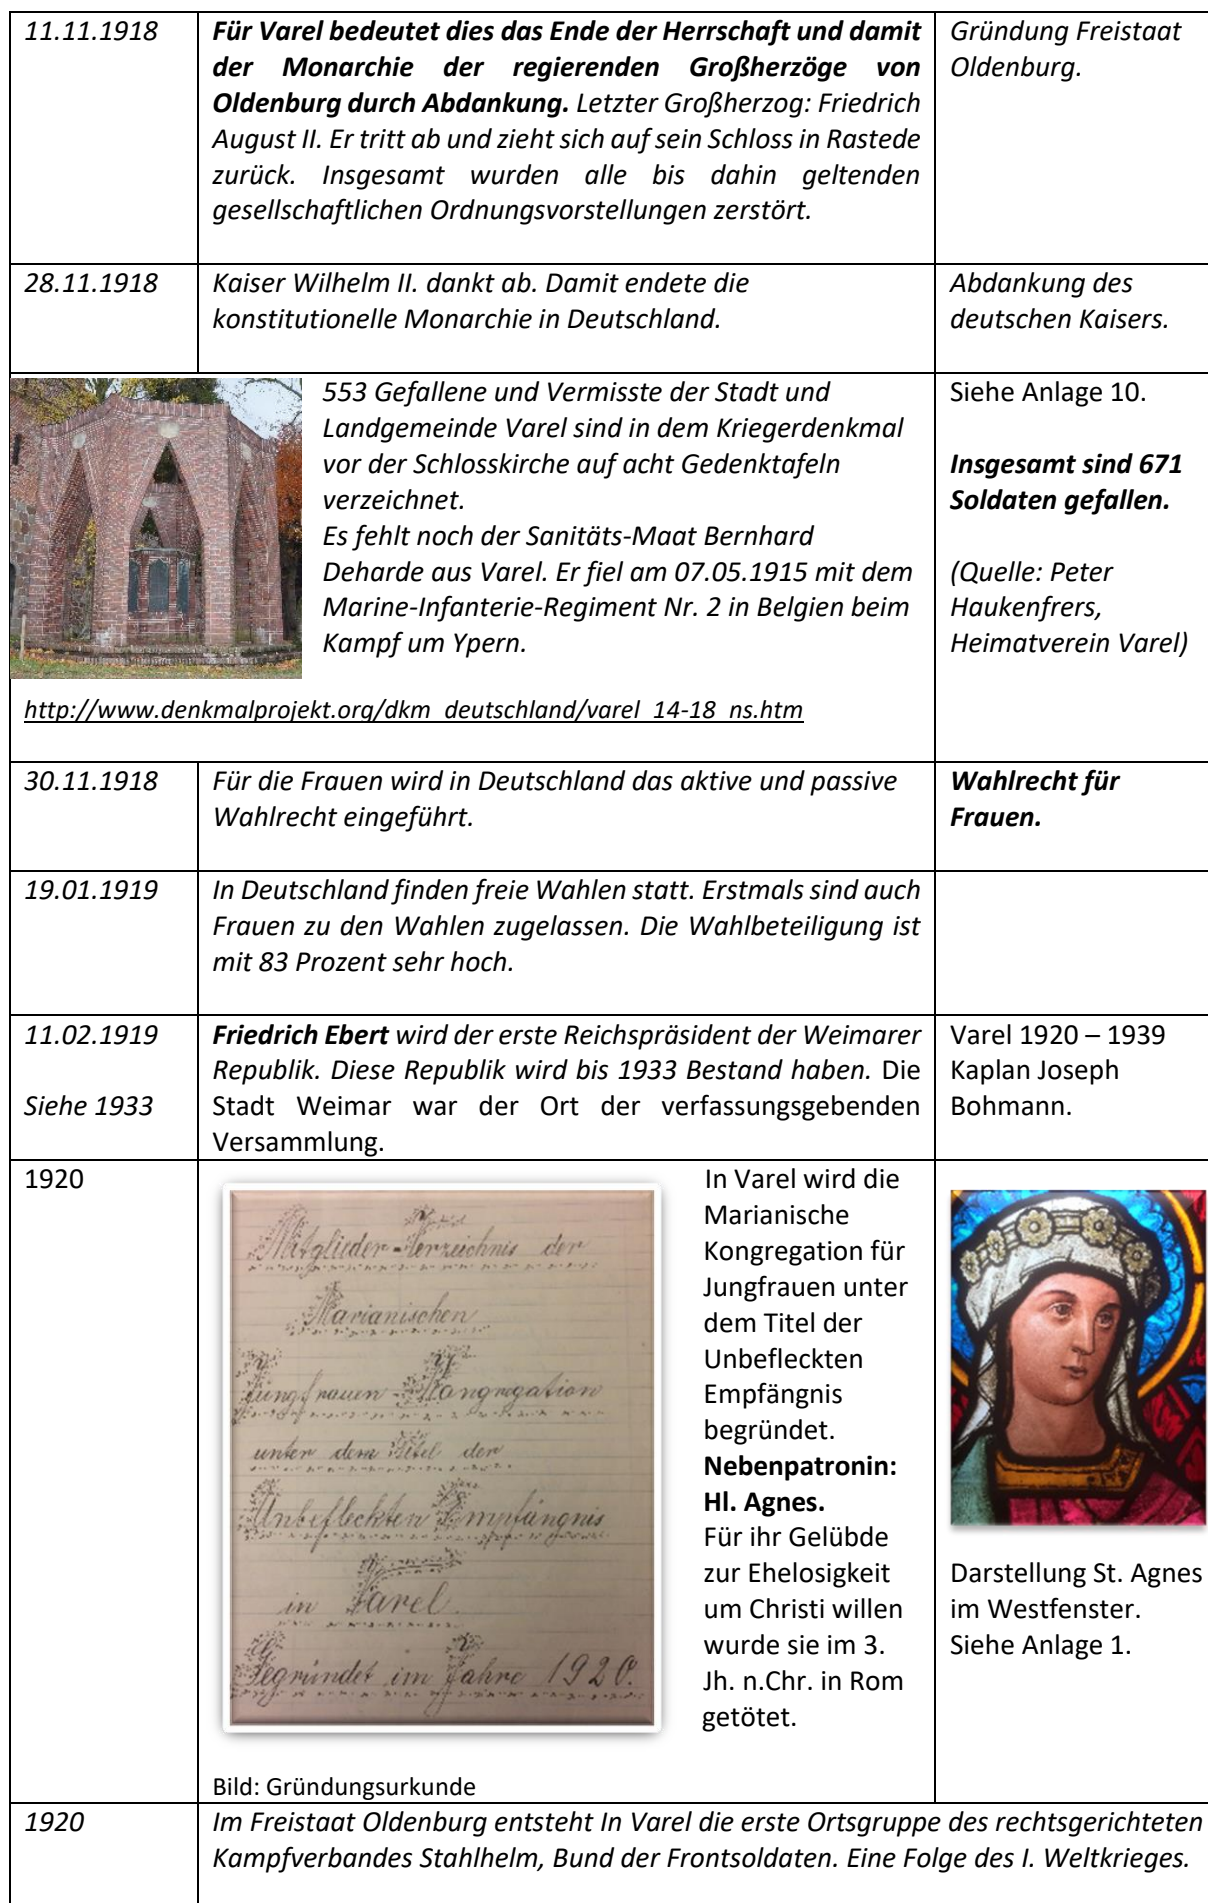 11.11.1918
Für Varel bedeutet dies das Ende der Herrschaft und damit
der Monarchie der regierenden Großherzöge von
Oldenburg durch Abdankung. Letzter Großherzog: Friedrich
August II. Er tritt ab und zieht sich auf sein Schloss in Rastede
zurück. Insgesamt wurden alle bis dahin geltenden
gesellschaftlichen Ordnungsvorstellungen zerstört.
Gründung Freistaat
Oldenburg.
28.11.1918
Kaiser Wilhelm II. dankt ab. Damit endete die
konstitutionelle Monarchie in Deutschland.
Abdankung des
deutschen Kaisers.
553 Gefallene und Vermisste der Stadt und
Landgemeinde Varel sind in dem Kriegerdenkmal
vor der Schlosskirche auf acht Gedenktafeln
verzeichnet.
Es fehlt noch der Sanitäts-Maat Bernhard
Deharde aus Varel. Er fiel am 07.05.1915 mit dem
Marine-Infanterie-Regiment Nr. 2 in Belgien beim
Kampf um Ypern.
http://www.denkmalprojekt.org/dkm_deutschland/varel_14-18_ns.htm
Siehe Anlage 10.
Insgesamt sind 671
Soldaten gefallen.
(Quelle: Peter
Haukenfrers,
Heimatverein Varel)
30.11.1918
Für die Frauen wird in Deutschland das aktive und passive
Wahlrecht eingeführt.
Wahlrecht für
Frauen.
19.01.1919
In Deutschland finden freie Wahlen statt. Erstmals sind auch
Frauen zu den Wahlen zugelassen. Die Wahlbeteiligung ist
mit 83 Prozent sehr hoch.
11.02.1919
Siehe 1933
Friedrich Ebert wird der erste Reichspräsident der Weimarer
Republik. Diese Republik wird bis 1933 Bestand haben. Die
Stadt Weimar war der Ort der verfassungsgebenden
Versammlung.
Varel 1920 – 1939
Kaplan Joseph
Bohmann.
1920
Mitglieder-Verzeichnis der
Marianischen
Jungfrauen-Kongregation
unter dem Titel der
Unbefleckten Empfängnis
in Varel.
Gegründet im Jahre 1920.
Bild: Gründungsurkunde
In Varel wird die
Marianische
Kongregation für
Jungfrauen unter
dem Titel der
Unbefleckten
Empfängnis
begründet.
Nebenpatronin:
Hl. Agnes.
Für ihr Gelübde
zur Ehelosigkeit
um Christi willen
wurde sie im 3.
Jh. n.Chr. in Rom
getötet.
Darstellung St. Agnes
im Westfenster.
Siehe Anlage 1.
1920
Im Freistaat Oldenburg entsteht In Varel die erste Ortsgruppe des rechtsgerichteten
Kampfverbandes Stahlhelm, Bund der Frontsoldaten. Eine Folge des I. Weltkrieges.